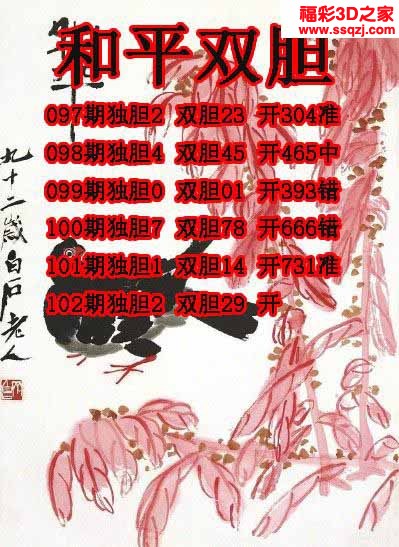 福彩3D之家
www.ssqzj.com
和平双胆
097期独胆2 双胆23 开304准
098期独胆4 双胆45 开465中
099期独胆0 双胆01 开393错
100期独胆7 双胆78 开666错
101期独胆1 双胆14 开731准
102期独胆2 双胆29 开
九十二歲白石老人